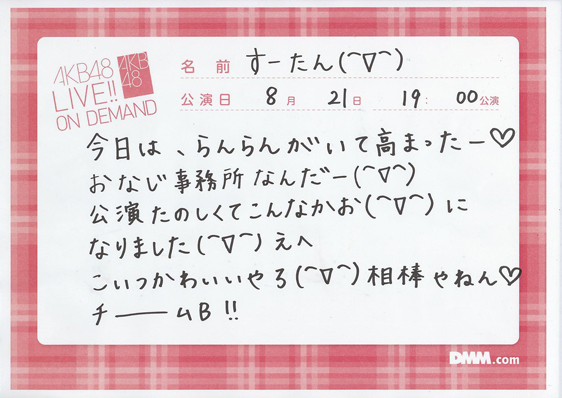 AKB48
LIVE!!
ON DEMAND
AKB
48
名前 すーたん(^∇^)
公演日 8月 21日 19: 00公演
今日は、らんらんがいて高まったー♡
おなじ事務所なんだー(^∇^)
公演たのしくてこんなかお(^∇^)に
なりました(^∇^)えへ
こいつかわいいやろ(^∇^)相棒やねん♡
チームB!!
DMM.com